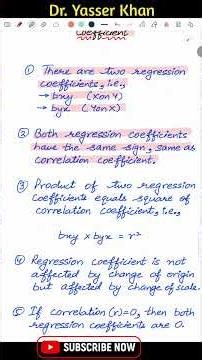 Dr. Yasser Khan
Coefficient
① There are two regression
coefficients, i.e.,
→ bxy (X on Y)
→ byx (Y on X)
② Both regression coefficients
have the same sign, same as
correlation coefficient.
③ Product of two regression
coefficients equals square of
correlation coefficient, i.e.,
bxy × byx = r²
④ Regression coefficient is not
affected by change of origin
but affected by change of scale.
⑤ If correlation (r)=0, then both
regression coefficients are 0.
SUBSCRIBE NOW